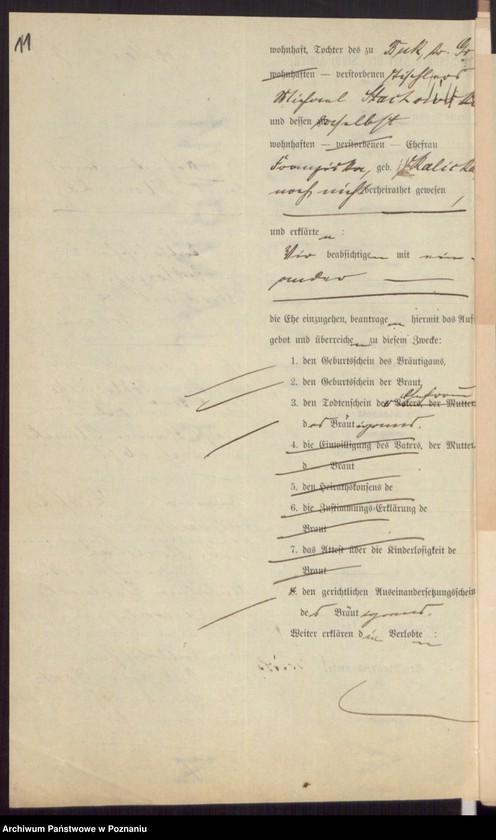 11
wohnhaft, Tochter des zu Buk, Kr. Gr
wohnhaften — verstorbenen Tischlers
Michael Stachowisk
und dessen daselbst
wohnhaften — verstorbenen — Ehefrau
Franziska, geb. Kaliska
noch nicht verheirathet gewesen
und erklärten :
Wir beabsichtigen mit ein-
ander
die Ehe einzugehen, beantragen hiermit das Auf
gebot und überreichen zu diesem Zwecke:
1. den Geburtsschein des Bräutigams,
2. den Geburtsschein der Braut,
3. den Todtenschein der Ehefrau Vaters, der Mutter
des Bräutigams.
4. die Einwilligung des Vaters, der Mutter
d Braut
5. den Heirathskonsens de
6. die Zustimmungs-Erklärung de
Braut
7. das Attest über die Kinderlosigkeit de
Braut
8. den gerichtlichen Auseinandersetzungsschein
des Bräutigams.
Weiter erklären die Verlobten :
Archiwum Państwowe w Poznaniu